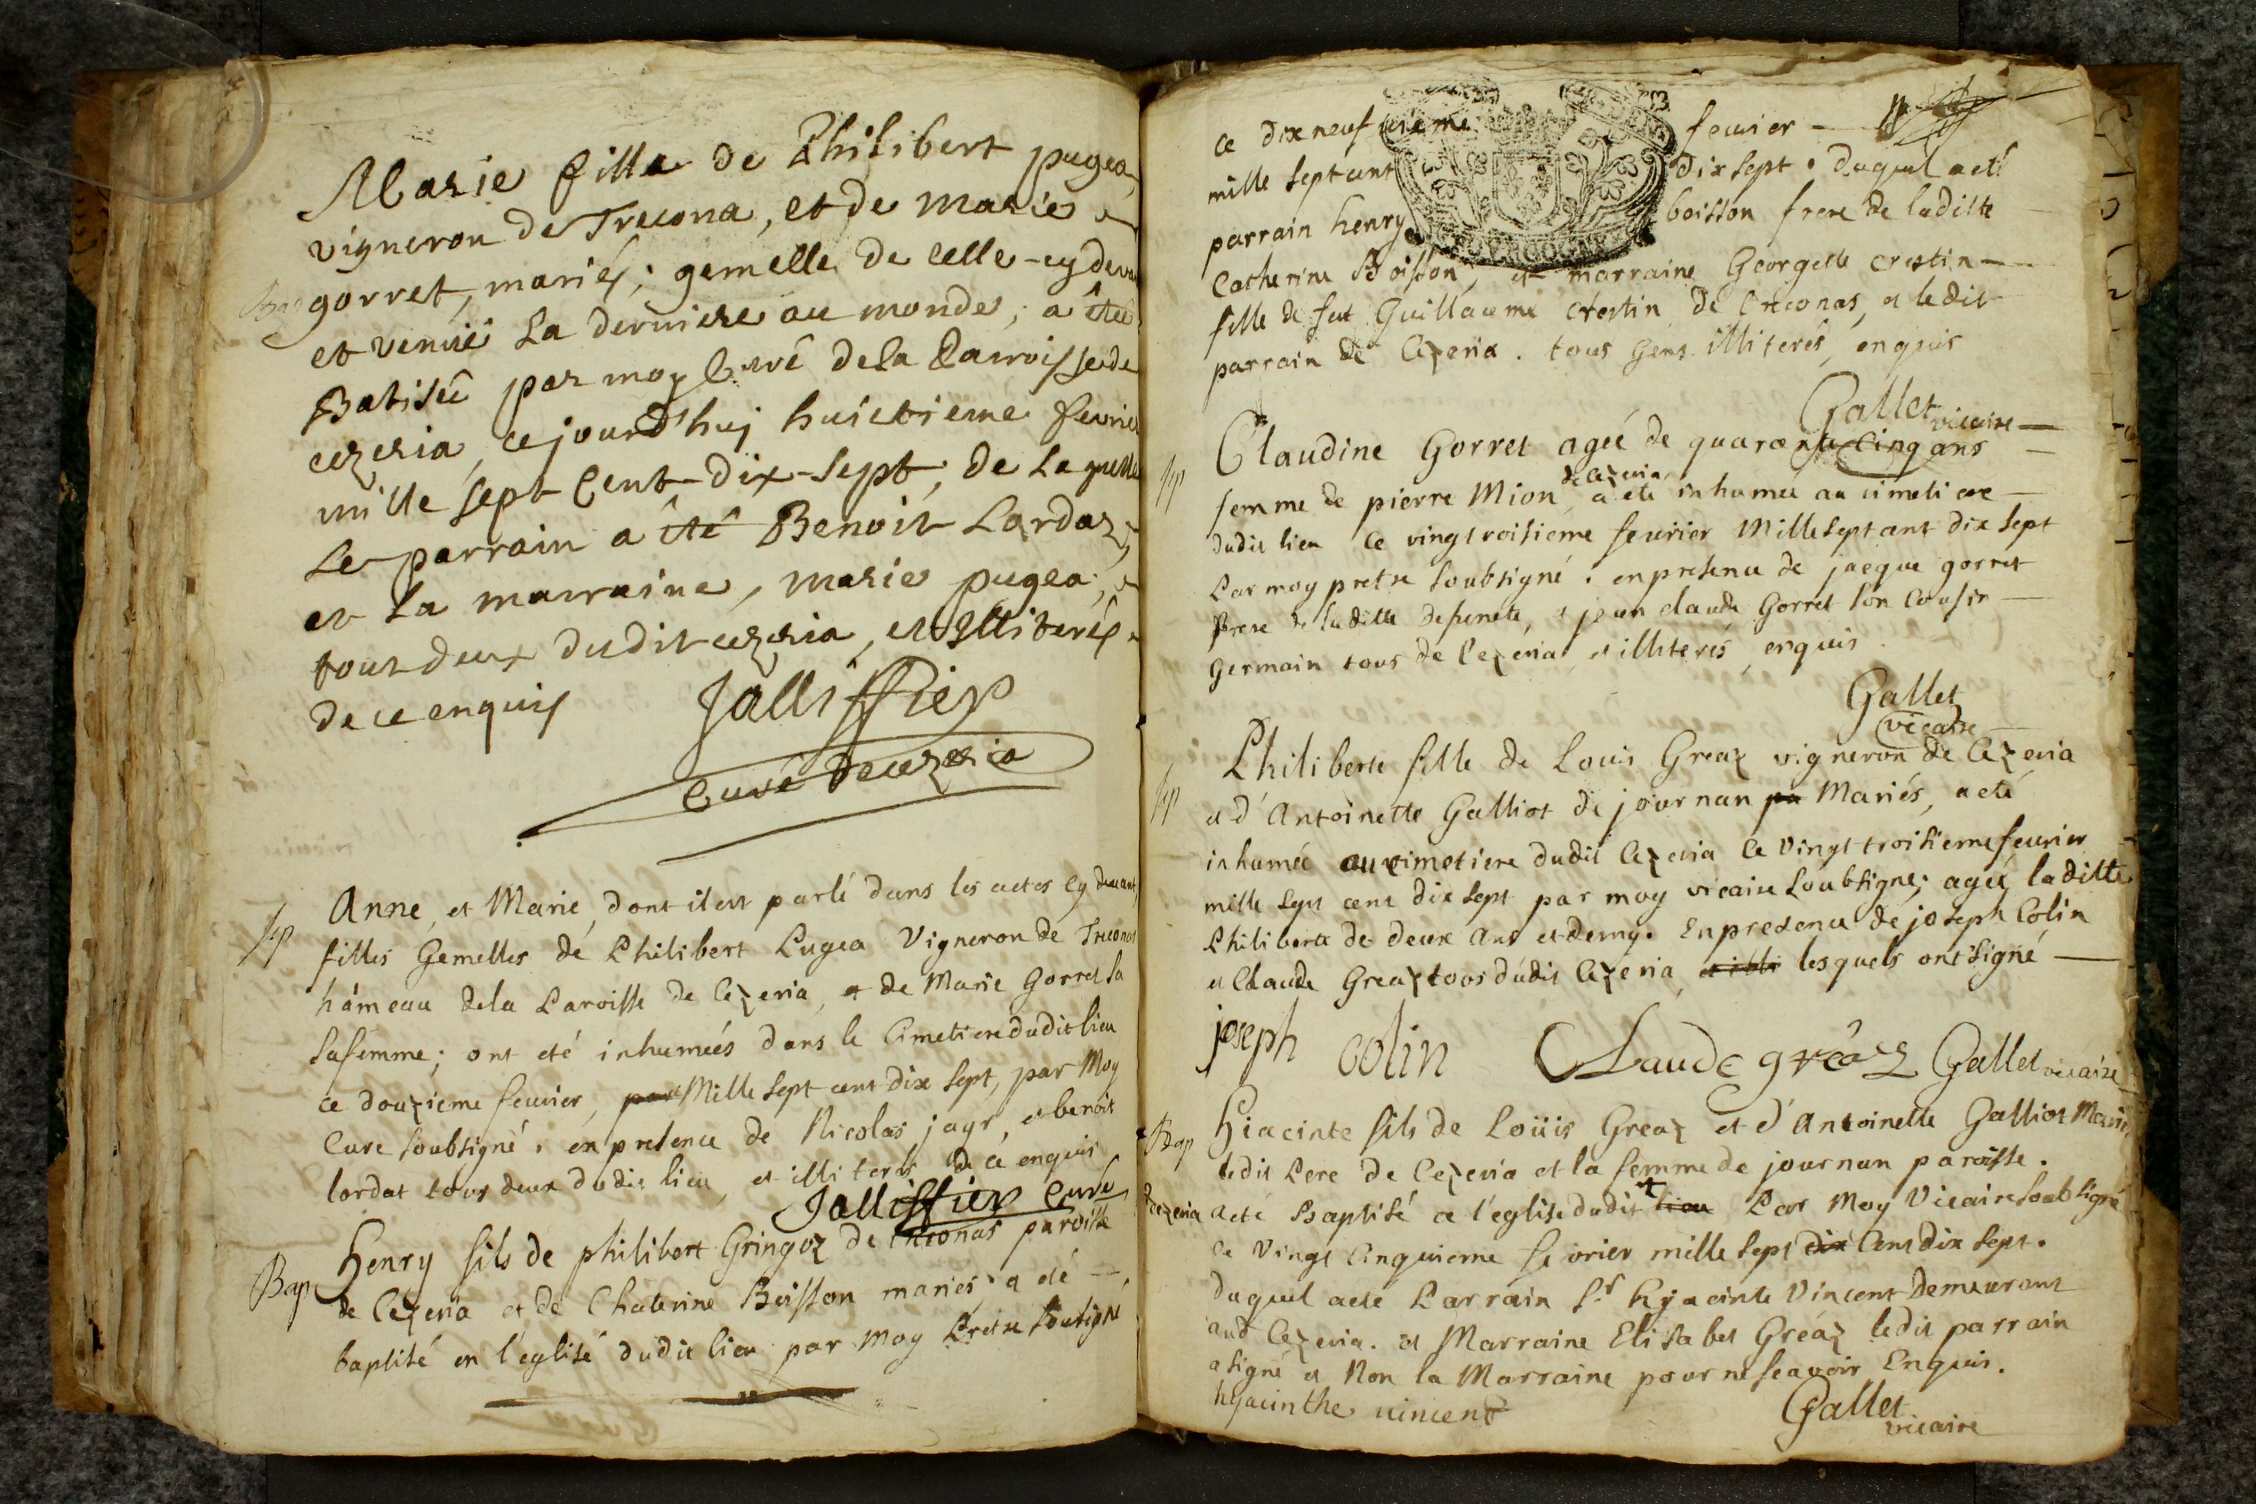 Marie fille de Philibert pugea,
vigneron de Trecona, et de marie
gorret, mariés; gemelle de celle-cy devan
et venüe la derniere au monde; a été
Batisée par moy Curé de la Parroisse de
cezeria, ce jourd'huj huictieme fevrier
mille sept Cent-Dix-sept, de laquelle
Le parrain a été Benoit Lardaz,
et la marraine, marie pugea,
tout deux dudit cezeria, et illiterés
de ce enquis Jalliffier
Curé de cezeria
Bap
Sep
Anne, et Marie, dont il est parlé dans les actes cy devant,
filles Gemelles de Philibert Pugea Vigneron de Treconas
hâmeau dela Paroisse de Cezeria, et de Marie Gorret sa
sa femme; ont eté inhumées dans le Cimetiere dudit lieu
ce douzieme feuvrier, par Mille sept cent dix sept, par Moy
Curé soubsigné. en presence de Nicolas jayr, et benoit
lordat tous deux dudit lieu, et illiterés de ce enquis
Jalliffier Curé
Bap
Henry fils de philibert Gringoz de treconas paroisse
de Cezeria et de Chaterine Boisson mariés a eté —
baptisé en l'eglise dudit lieu par moy Pretre soubsigné
ce dix neuf vieme fevrier —
mille sept cent dix sept. duquel a eté
parrain henry boisson frere de laditte
Catherine Boisson, et marraine Georgette crestin —
fille de feut Guillaume crestin de treconas, et ledit
parrain de Cezeria. tous gens illiterés, enquis
Gallet vicaire —
Sep
Claudine Gorret agée de quarante Cinq ans —
femme de pierre Mion de cezeria a eté inhumée au cimetiere —
dudit lieu ce vingtroisieme feuvrier Mille sept cent dix sept
Par moy pretre soubsigné. en presence de jacque gorret
frere de laditte defunete, et jean claude Gorret son Cousin —
Germain tous de Cezeria et illiterés, enquis
Gallet
vicaire —
Sep
Philiberte fille de Louis Greaz vigneron de Cezeria
et d'Antoinette Galliot de journan pa Mariés, a eté
inhumée au cimetiere dudit Cezeria ce Vingt troisieme feuvrier
mille sept cent dix sept par moy vicaire soubsigné; agée laditte
Philiberte de deux ans et demy. En presence de joseph Colin
et Claude Greaz tous dudit Cezeria, et illi lesquels ont signé —
joseph colin Claude greaz Gallet vicaire
Bap
Hiacinte fils de Loüis Greaz et d'Antoinette Galliot Mariés
ledit Pere de Cezeria et la femme de journan paroisse.
de cezeria a eté Baptisé a l'eglise dudit lieu Par Moy Vicaire soubsigné
ce Vingt Cinquieme fevrier mille sept dix Cent dix sept.
duquel a eté Parrain Sr hyacinte Vincent Demeurant
aud Cezeria. et Marraine Elisabet Greaz ledit parrain
a signé et Non la Marraine pour ne scavoir Enquis.
hyacinthe vincent Gallet
vicaire